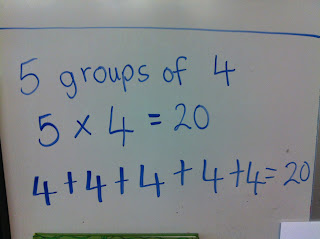 5 groups of 4
5 × 4 = 20
4+4+4+4+4=20